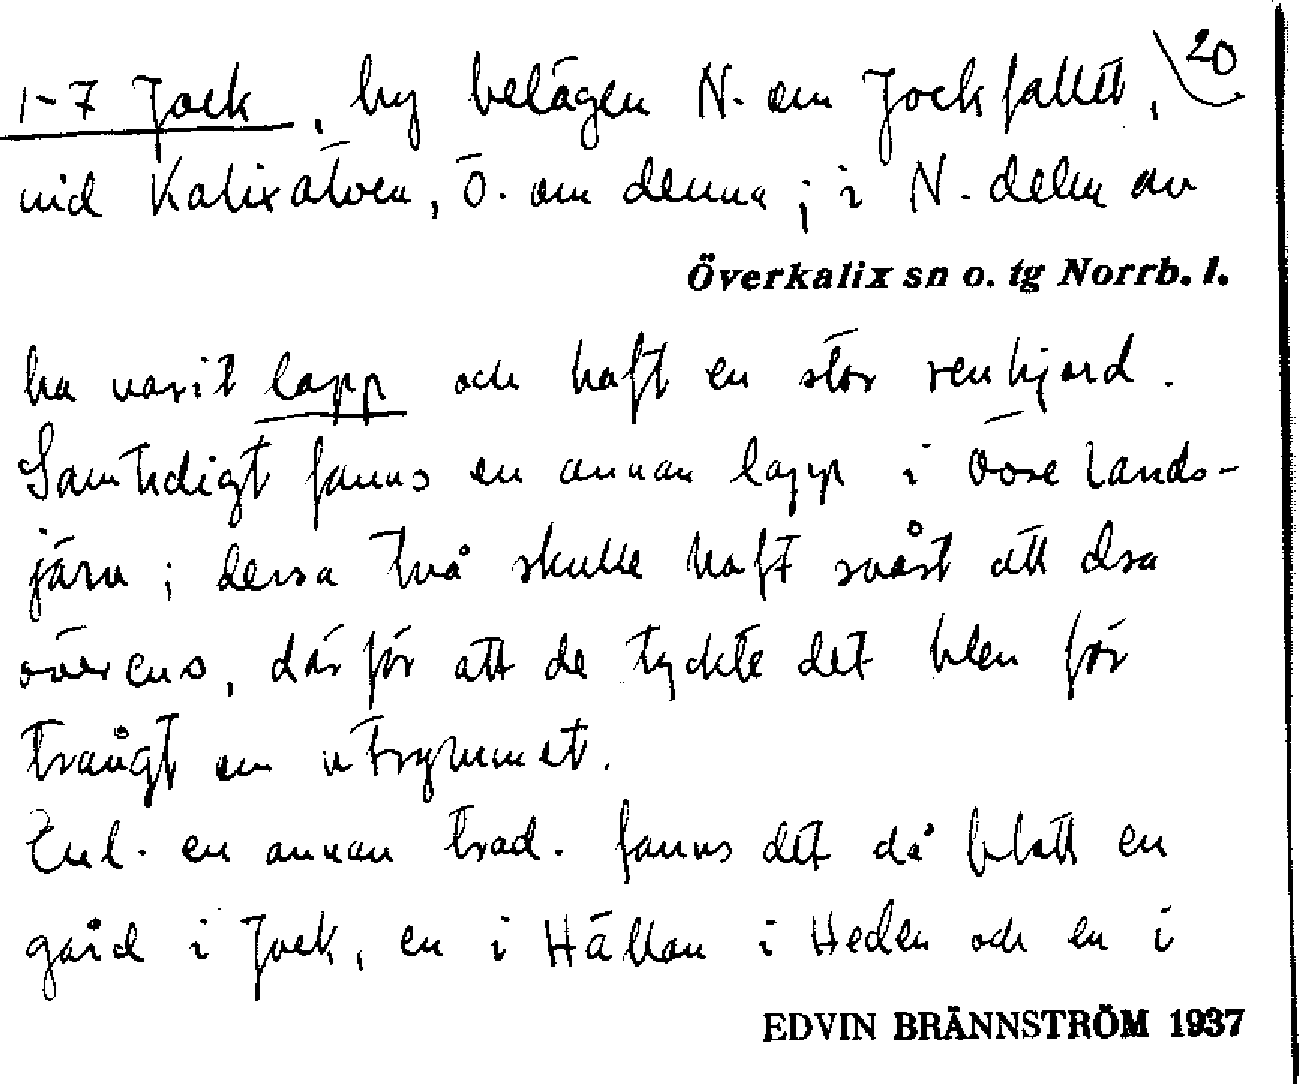 20
1-7 Jock, by belägen N. om Jockfallet,
vid Kalixälven, Ö. om denna; i N. delen av
Överkalix sn o. tg Norrb. l.
ha varit lapp och haft en stor renhjord.
Samtidigt fanns en annan lapp i Övre Lands-
järv; dessa två skulle haft svårt att dra
överens, därför att de tyckte det blev för
trångt om utrymmet.
Enl. en annan trad. fanns det då blott en
gård i Jock, en i Hällan i Heden och en i
EDVIN BRÄNNSTRÖM 1937